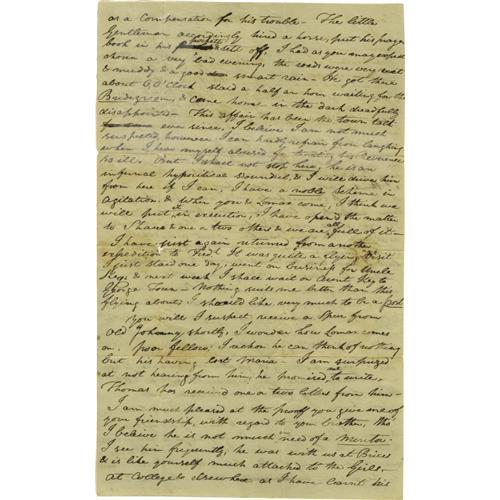 as a compensation for his trouble – The little
Gentleman accordingly hired a horse, put his prayer
book in his pocket & sett off, I had as you may expect
chosen a very bad evening, the roads were very wet
& muddy & a good smart rain – He got there
about 6 O'Clock staid a half an hour waiting for the
Bridegroom, & came home in the dark dreadfully
disappointed – This affair has been the town talk
ever since, I believe I am not much
suspected however I can hardly refrain from laughing
when I hear myself abused for treating his Reverence
so ill. But I shall not stop here, he is an
infernal hypocritical Scoundrel, & I will drive him
from here if I can, I have a noble scheme in
agitation, & when you & Lomax come, I think we
will put it in execution, I have opend the matter
to Thane & one or two others & we are all full of it –
I have just again returned from another
expedition to Fred. It was quite a flying visit
I just staid one day, went on business for Uncle
Key & next week I shall wait on Aunt Key to
George Town – Nothing suits me better than this
flying about, I should like very much to be a
You will I suspect receive a Spur from
Old Johnny shortly, I wonder how Lomax comes
on, poor fellow, I reckon he can think of nothing
but his having lost Maria – I am surprized
at not hearing from him, he promised me to write,
Thomas has received one or two letters from him –
I am much pleased at the proof you give me of
your friendship, with regard to your brother, tho
I believe he is not much in need of a Mentor –
I see him frequently, he was with us at Brices
& is like yourself much attached to the Girls.
At College & elsewhere as I have learnt his